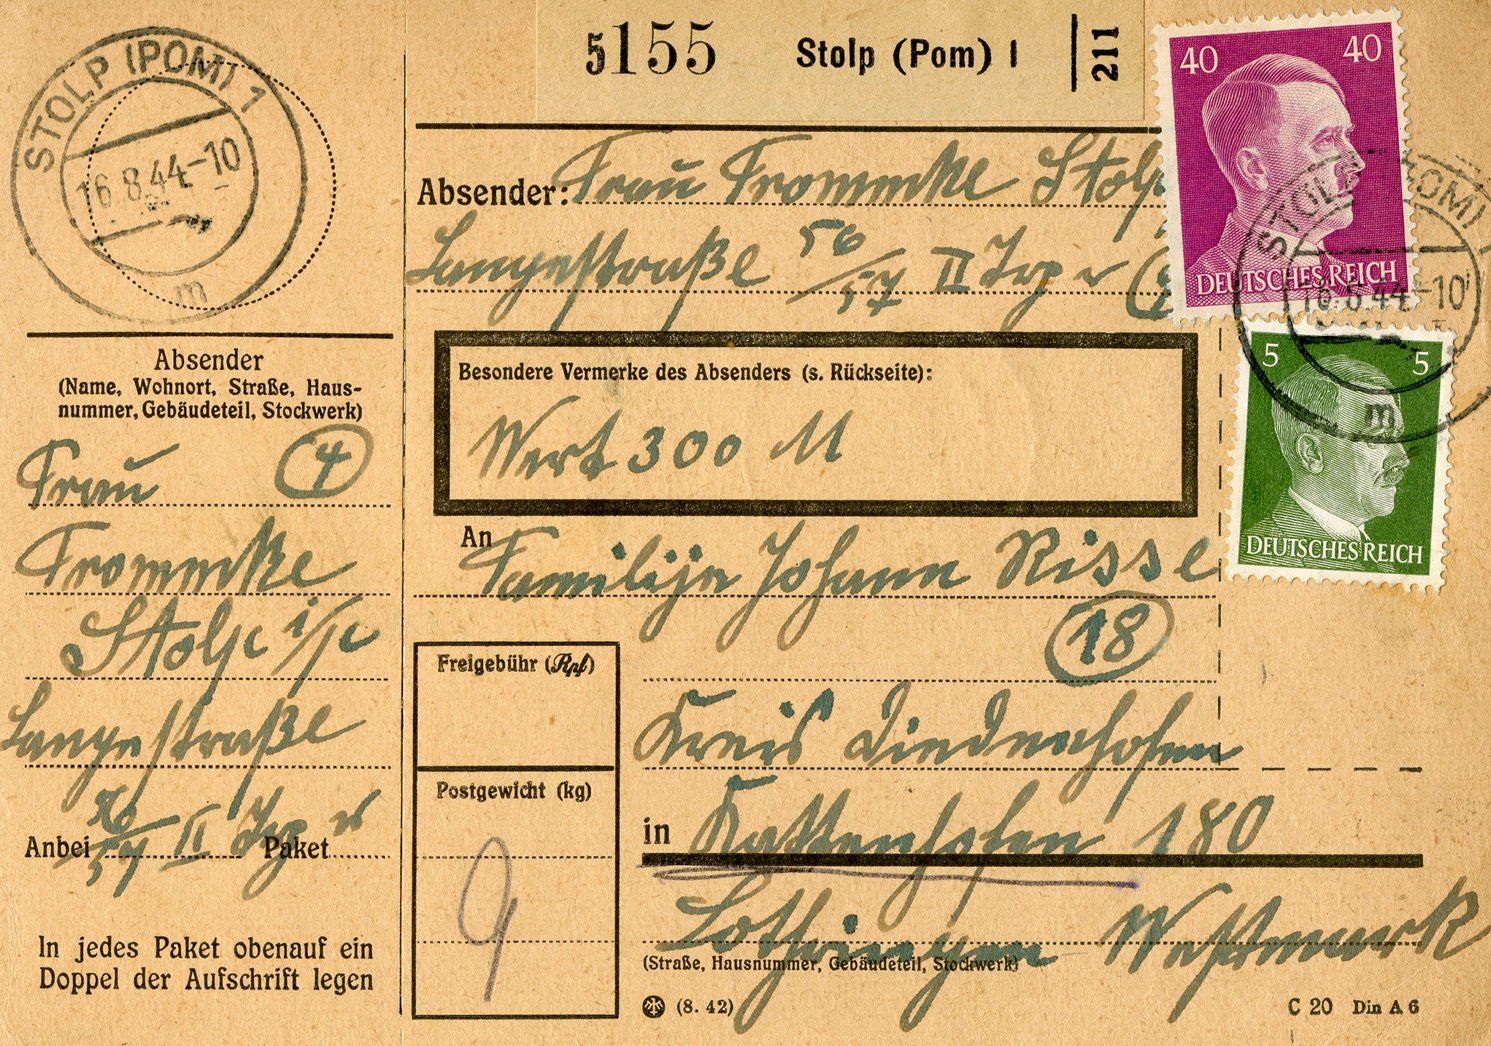 STOLP (POM) 1
16.8.44-10
m
5155 Stolp (Pom) 1 211
40 40
DEUTSCHES REICH
STOLP (POM) 1
16.8.44-10
m
5 5
DEUTSCHES REICH
Absender: Frau Frommke Stolp
Langestraße 56/57 II Trp r
Absender
(Name, Wohnort, Straße, Haus-
nummer, Gebäudeteil, Stockwerk)
Frau (4)
Frommke
Stolp i/p
Langestraße
56/57 II Trp r
Anbei Paket
In jedes Paket obenauf ein
Doppel der Aufschrift legen
Besondere Vermerke des Absenders (s. Rückseite):
Wert 300 M
An Familije Johann Risse
(18)
Freigebühr (Rpf)
Kreis Diedenhofen
Postgewicht (kg)
9
in Kattenhofen 180
Lothringen Westmark
(Straße, Hausnummer, Gebäudeteil, Stockwerk)
(8. 42)
C 20 Din A 6